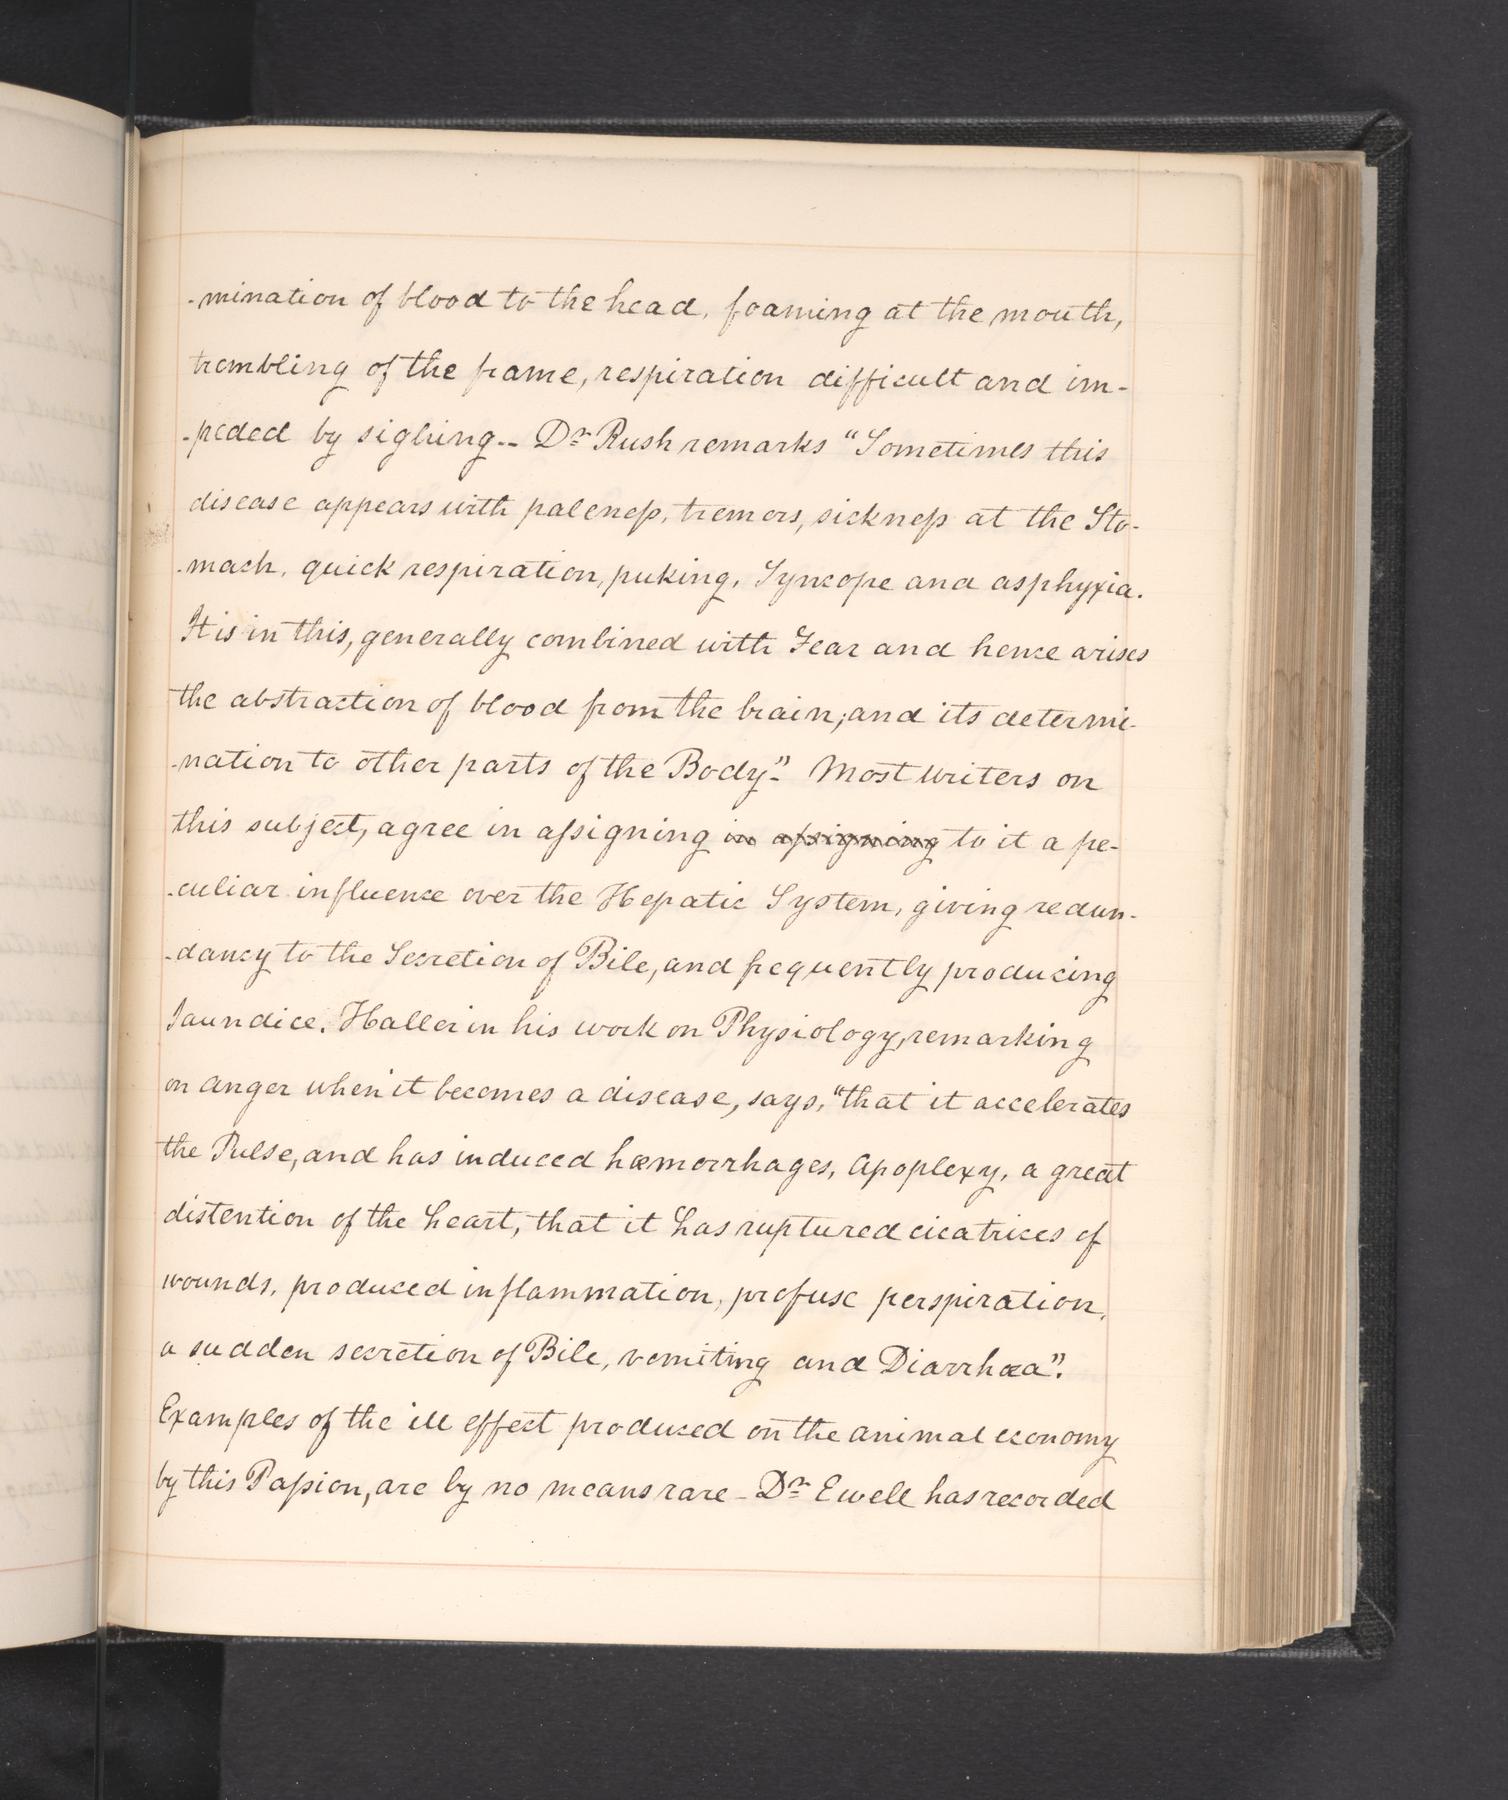 -mination of blood to the head, foaming at the mouth,
trembling of the frame, respiration difficult and im-
-peded by sighing-- Dr Rush remarks "Sometimes this
disease appears with paleneſs, tremors, sickneſs at the Sto-
-mach, quick respiration, puking, Syncope and asphyxia.
It is in this, generally combined with Fear and hence arises
the abstraction of blood from the brain; and its determi-
-nation to other parts of the Body"- Most writers on
this subject, agree in aſsigning in aſsigning to it a pe-
-culiar influence over the Hepatic System, giving redun-
-dancy to the Secretion of Bile, and frequently producing
Jaundice. Haller in his work on Physiology, remarking
on anger when it becomes a disease, says, "that it accelerates
the Pulse, and has induced hæmorrhages, Apoplexy, a great
distention of the heart, that it has ruptured cicatrices of
wounds, produced inflammation, profuse perspiration,
a sudden secretion of Bile, vomiting and Diarrhœa".
Examples of the ill effect produced on the animal economy
by this Paſsion, are by no means rare - Dr Ewell has recorded